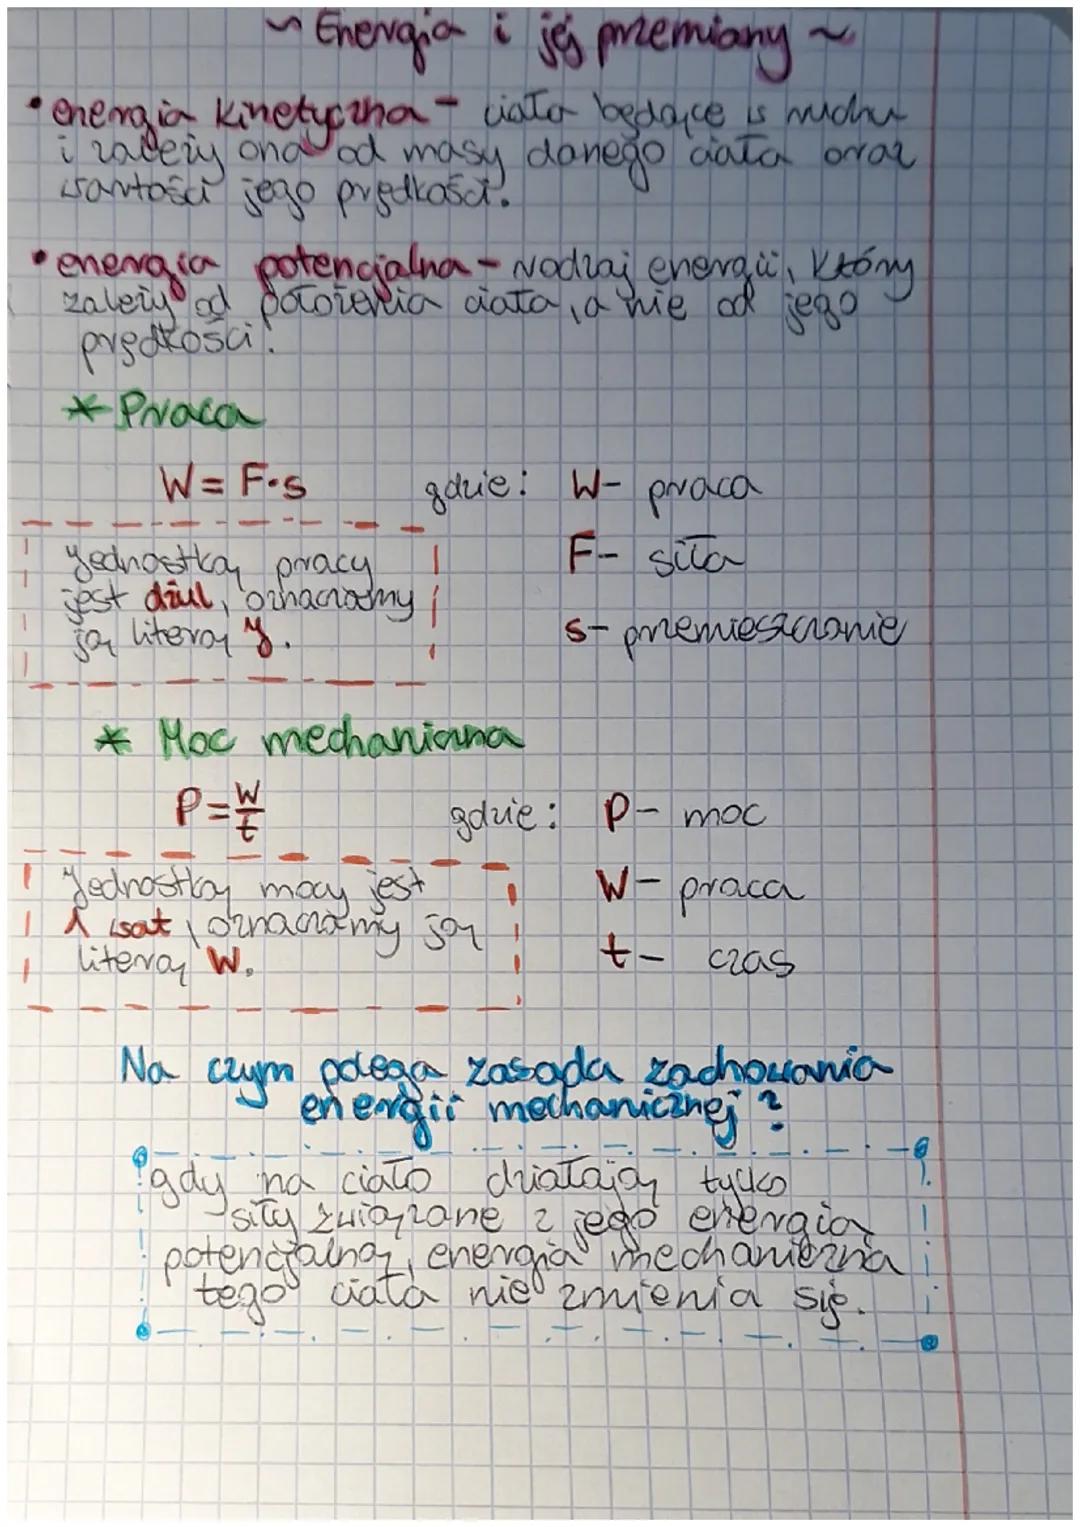 ~ Energia i jej przemiany ~
• energia kinetyczna - ciała będące w ruchu
i zależy ona od masy danego ciała oraz
wartości jego prędkości.
• energia potencjalna - rodzaj energii, który
zależy od położenia ciała, a nie od jego
prędkości.
* Praca
W = F·s gdzie: W - praca
F - siła
s - przemieszczanie
Jednostką pracy
jest dżul, oznaczamy
ją literą J.
* Moc mechaniczna
P = W/t gdzie: P - moc
W - praca
t - czas
Jednostką mocy jest
1 wat, oznaczamy ją
literą W.
Na czym polega zasada zachowania
energii mechanicznej?
gdy na ciało działają tylko
siły związane z jego energią
potencjalną, energia mechaniczna
tego ciała nie zmienia się.